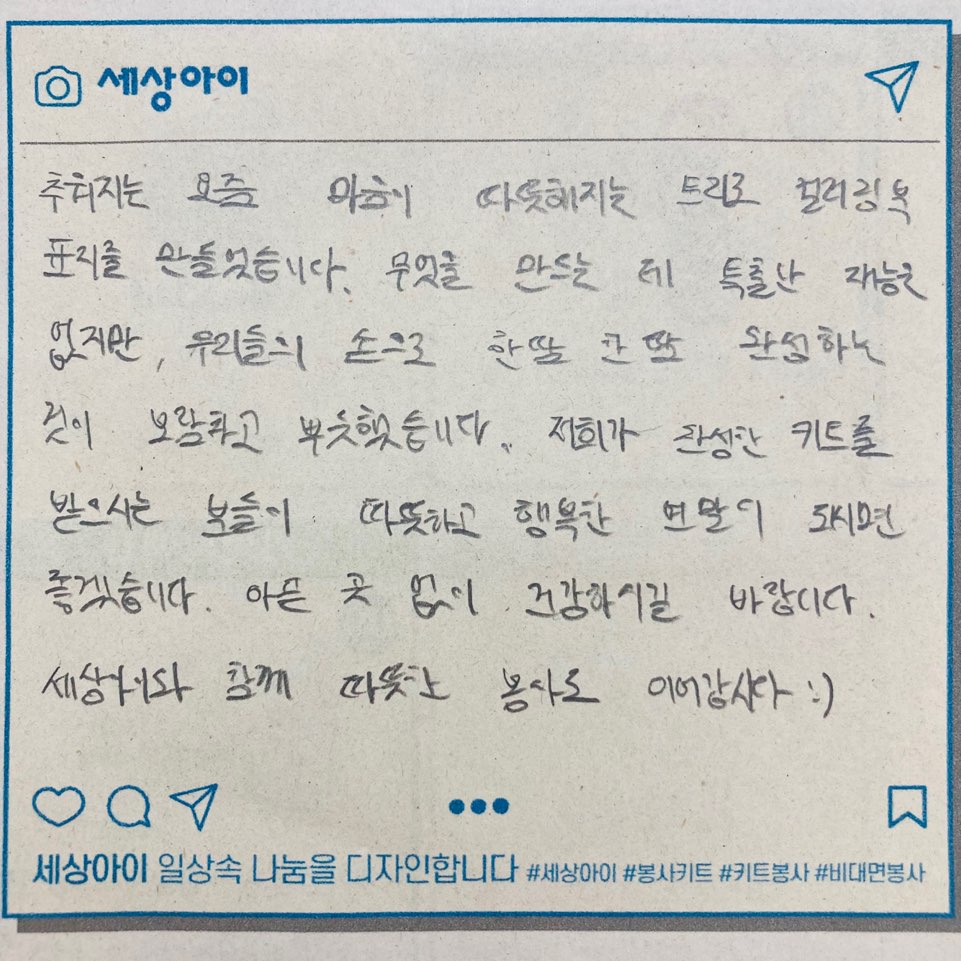 세상아이
추워지는 요즘 마음이 따뜻해지는 트리로 컬러링북
표지를 만들었습니다. 무엇을 만드는 데 특출난 재능은
없지만, 우리들의 손으로 한땀 한땀 완성하는
것이 보람차고 뿌듯했습니다. 저희가 완성한 키트를
받으시는 분들이 따뜻하고 행복한 연말이 되시면
좋겠습니다. 아픈 곳 없이 건강하시길 바랍니다.
세상아이와 함께 따뜻한 봉사로 이어갑시다 :)
세상아이 일상속 나눔을 디자인합니다 #세상아이 #봉사키트 #키트봉사 #비대면봉사